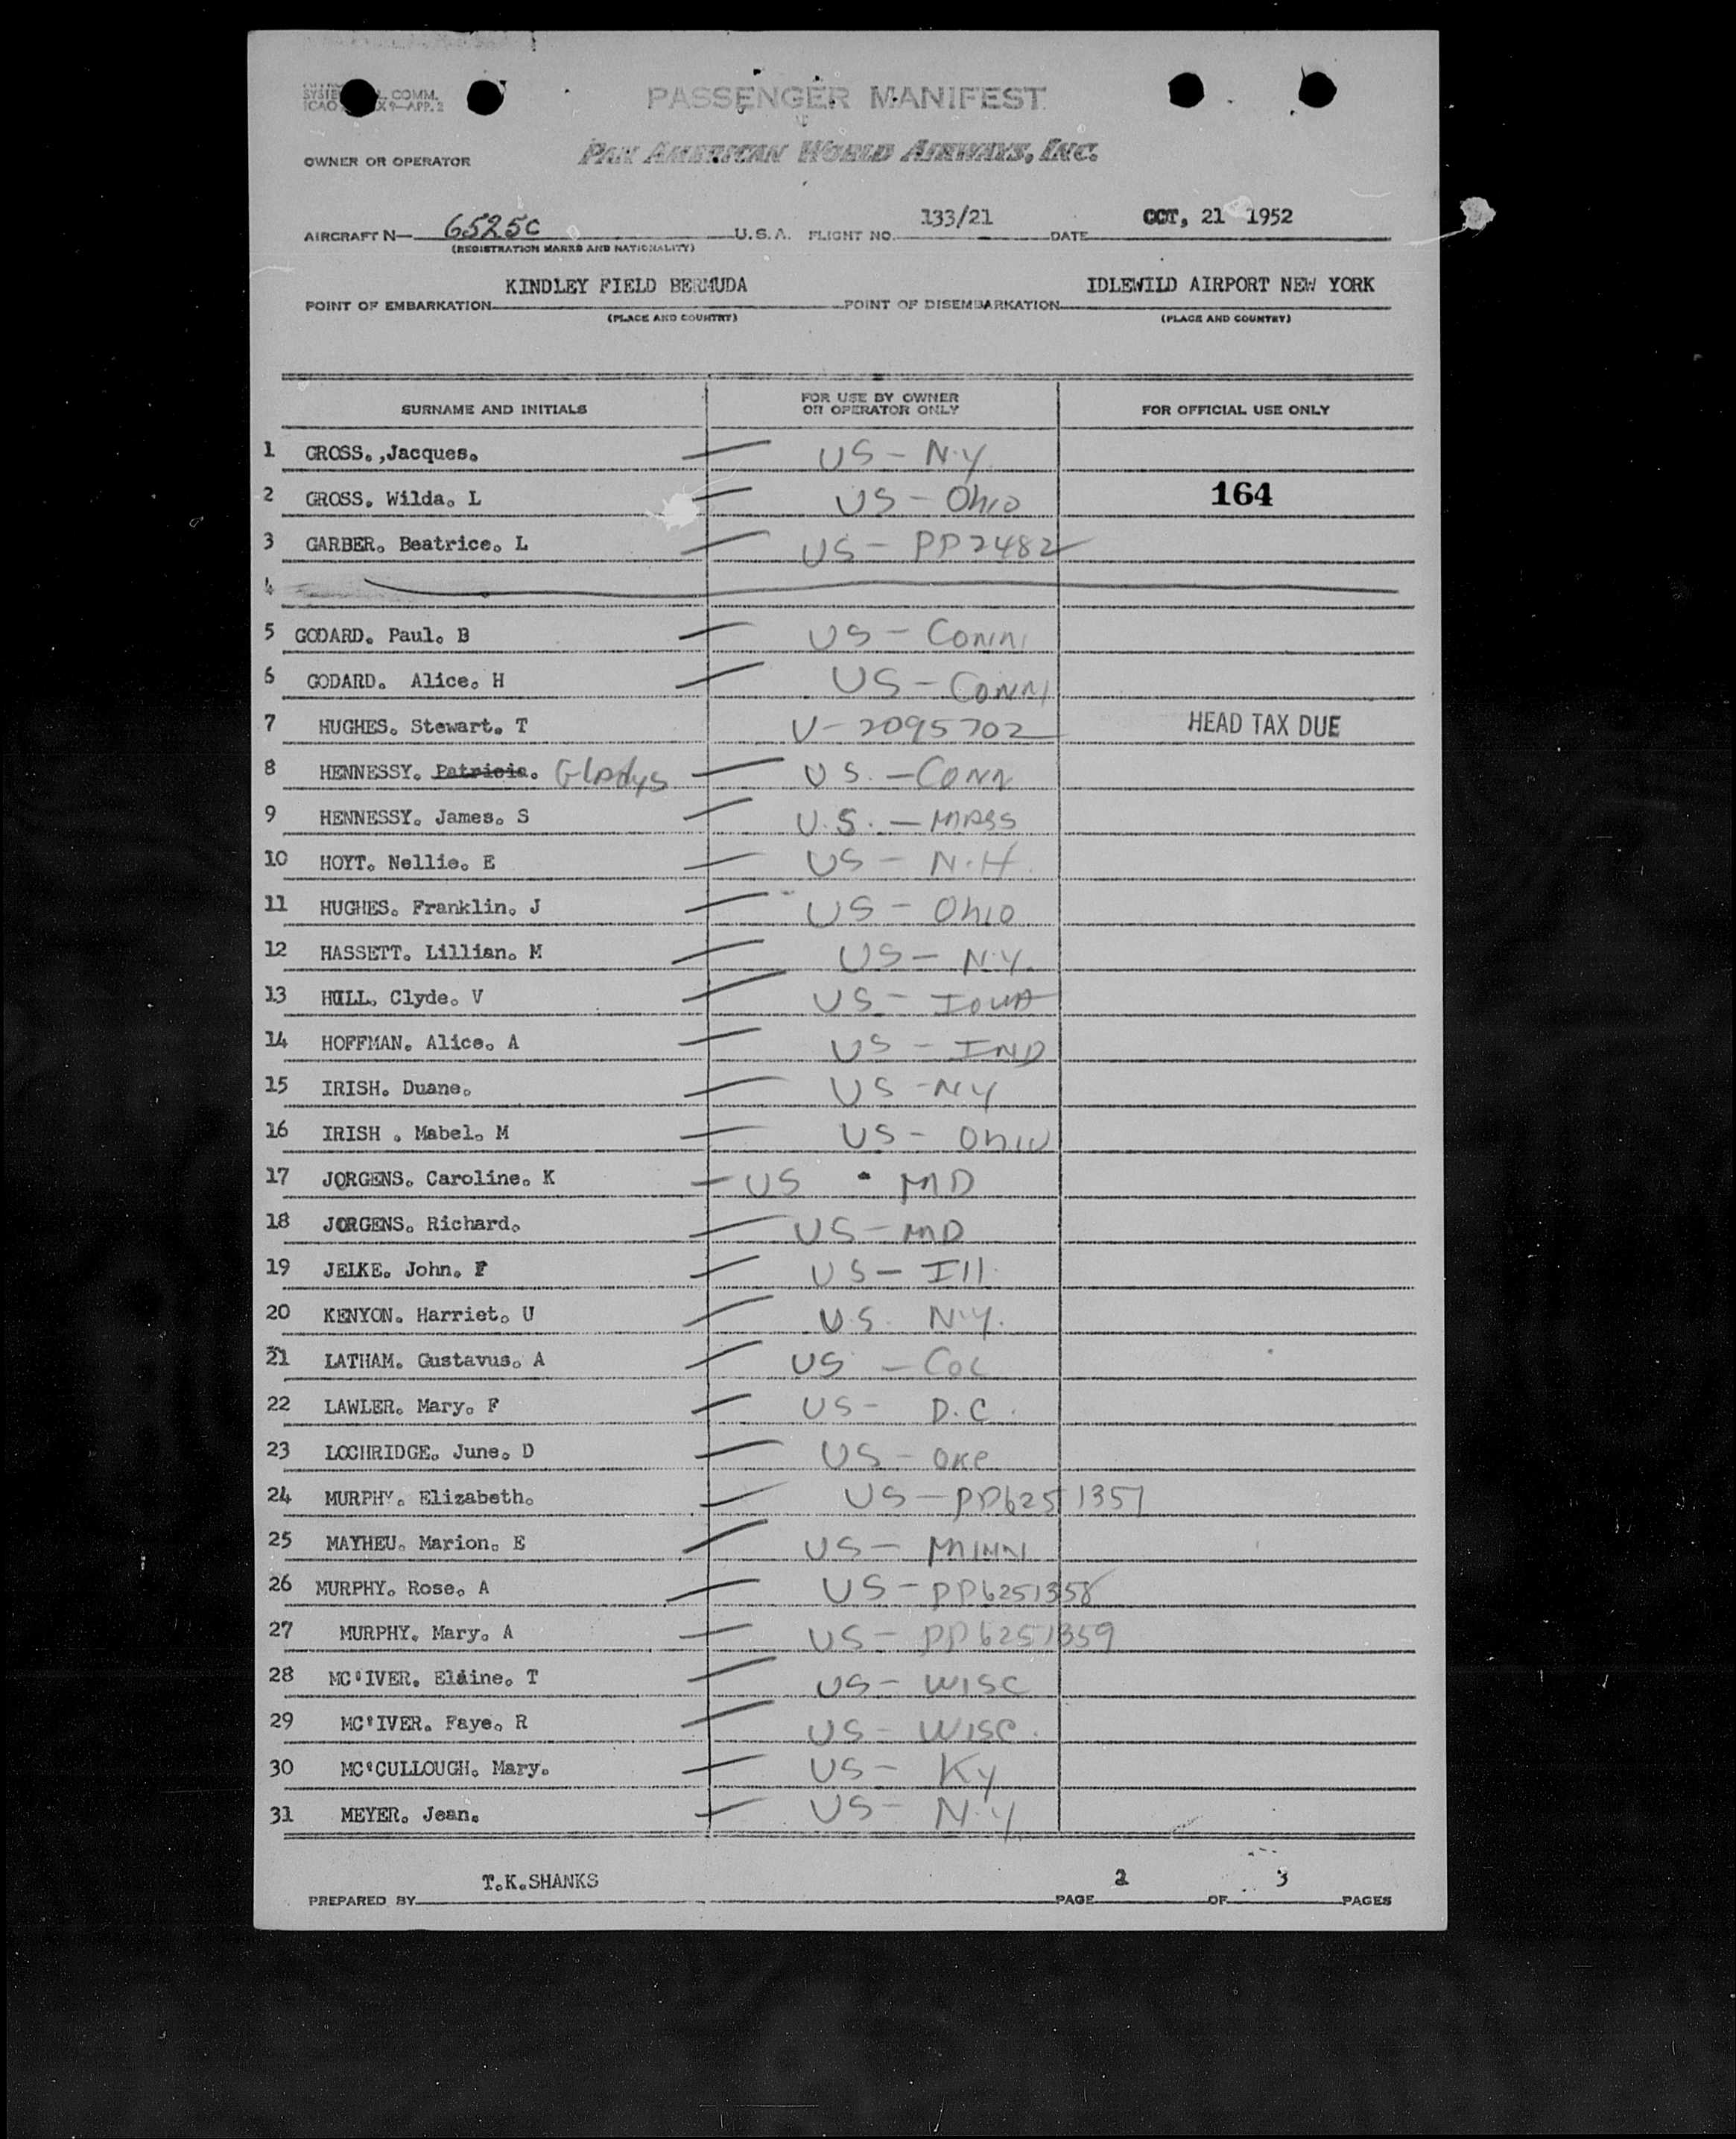 SYSTE L. COMM.
ICAO X 9—APP. 2
PASSENGER MANIFEST
OWNER OR OPERATOR PAN AMERICAN WORLD AIRWAYS, INC.
AIRCRAFT N— 6525C U.S.A. FLIGHT NO. 133/21 DATE OCT, 21 1952
(REGISTRATION MARKS AND NATIONALITY)
POINT OF EMBARKATION KINDLEY FIELD BERMUDA POINT OF DISEMBARKATION IDLEWILD AIRPORT NEW YORK
(PLACE AND COUNTRY) (PLACE AND COUNTRY)
SURNAME AND INITIALS FOR USE BY OWNER OR OPERATOR ONLY FOR OFFICIAL USE ONLY
1 GROSS.,Jacques. — US - N.Y.
2 GROSS. Wilda. L — US - Ohio 164
3 GARBER. Beatrice. L — US - PP2482
4
5 GODARD. Paul. B — US - Conn
6 GODARD. Alice. H — US - Conn
7 HUGHES. Stewart. T V-2095702 HEAD TAX DUE
8 HENNESSY. Patricia. Gladys — U S. - Conn
9 HENNESSY. James. S — U.S. - MASS
10 HOYT. Nellie. E — US - N.H.
11 HUGHES. Franklin. J — US - Ohio
12 HASSETT. Lillian. M — US - N.Y.
13 HULL. Clyde. V — US - IOWA
14 HOFFMAN. Alice. A — US - IND
15 IRISH. Duane. — US - NY
16 IRISH . Mabel. M — US - Ohio
17 JORGENS. Caroline. K — US - MD
18 JORGENS. Richard. — US - MD
19 JELKE. John. F — US - Ill.
20 KENYON. Harriet. U — U.S. N.Y.
21 LATHAM. Gustavus. A — US - Col
22 LAWLER. Mary. F — US - D.C.
23 LOCHRIDGE. June. D — US -
24 MURPHY. Elizabeth. — US - PP6251357
25 MAYHEU. Marion. E — US - MINN
26 MURPHY. Rose. A — US - PP6251358
27 MURPHY. Mary. A — US - PP6251359
28 MC'IVER. Elaine. T — US - WISC
29 MC'IVER. Faye. R — US - WISC.
30 MC'CULLOUGH. Mary. — US - Ky
31 MEYER. Jean. — US - N.Y
PREPARED BY T.K.SHANKS PAGE 2 OF 3 PAGES